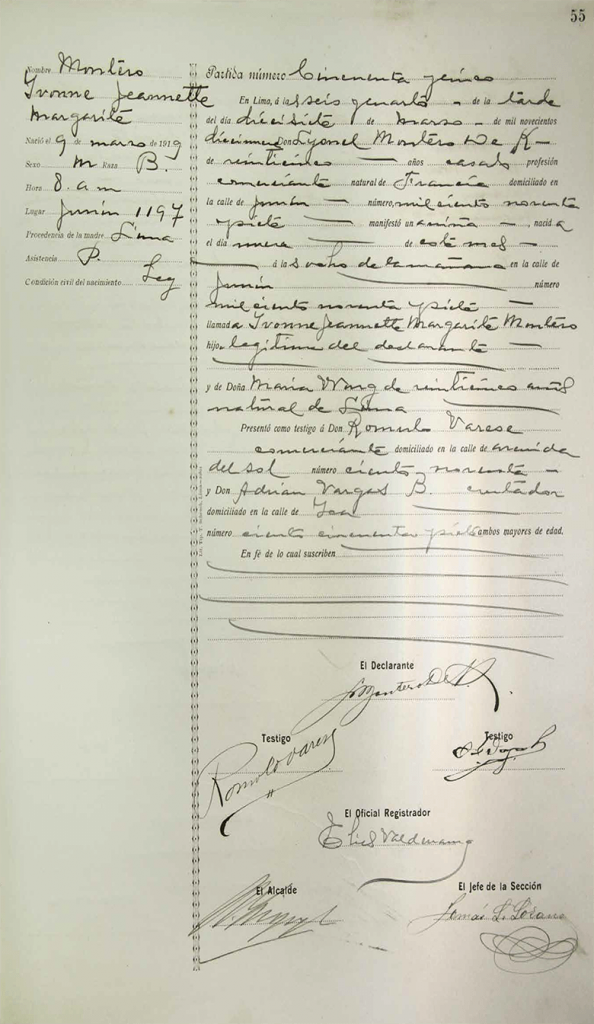 55
Nombre Montero
Yvonne Jeannette
Margarite
Nació el 9 de marzo de 1919
Sexo M Raza B.
Hora 8. a m
Lugar Junin 1197
Procedencia de la madre Lima
Asistencia P.
Condición civil del nacimiento Leg
Partida número Cincuenta y cinco
En Lima, á las seis y cuarto de la tarde
del día diecisiete de Marzo de mil novecientos
diecinueve Don Lyonel Montero De K
de veinticinco años casado profesión
comerciante natural de Francia domiciliado en
la calle de Junin número, mil ciento noventa
y siete manifestó un a niña nacid a
el día nueve de este mes
á las ocho de la mañana en la calle de
Junin número
mil ciento noventa y siete
llamad a Yvonne Jeannette Margarite Montero
hij a legitima del declarante
y de Doña Maria Wing de veinticinco años
natural de Lima
Presentó como testigo á Don Romulo Varese
comerciante domiciliado en la calle de avenida
del Sol número ciento noventa
y Don Adrian Vargas B. contador
domiciliado en la calle de Ica
número ciento cincuenta y siete ambos mayores de edad.
En fé de lo cual suscriben
El Declarante
L Montero De K.
Testigo
Testigo
Romulo Varese
El Oficial Registrador
El Alcalde
El Jefe de la Sección
Tomás L.